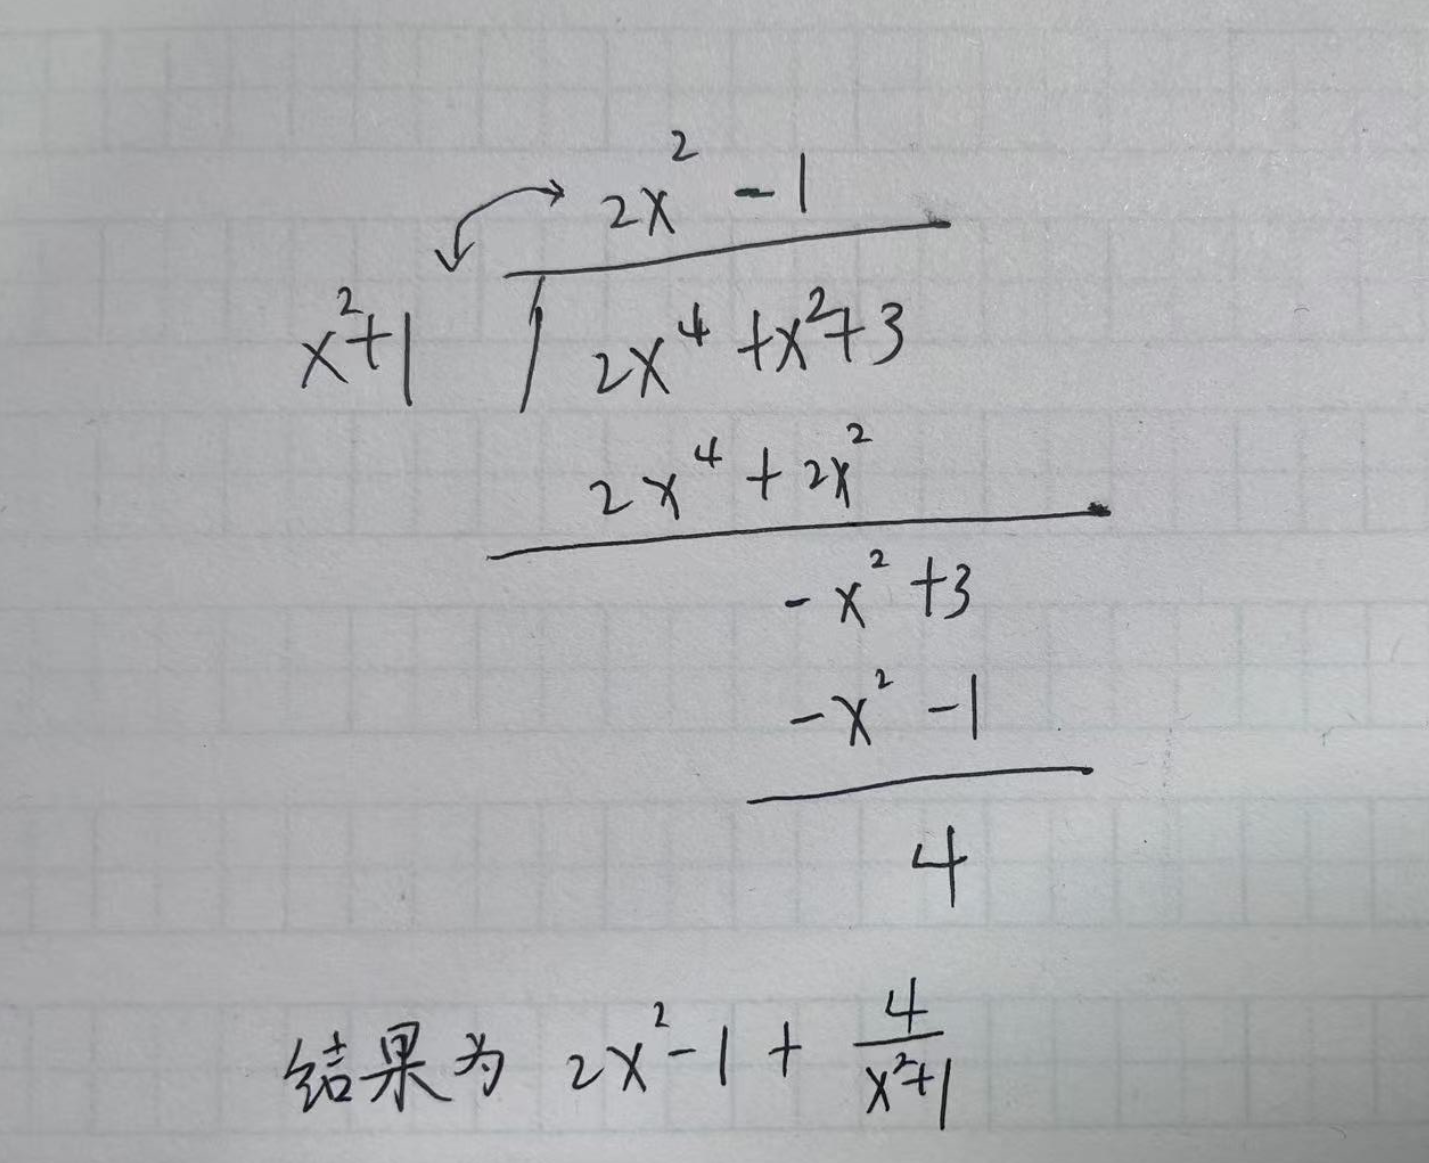 2x² - 1
x²+1 / 2x⁴ + x² + 3
2x⁴ + 2x²
- x² + 3
- x² - 1
4
结果为 2x² - 1 + 4/(x²+1)